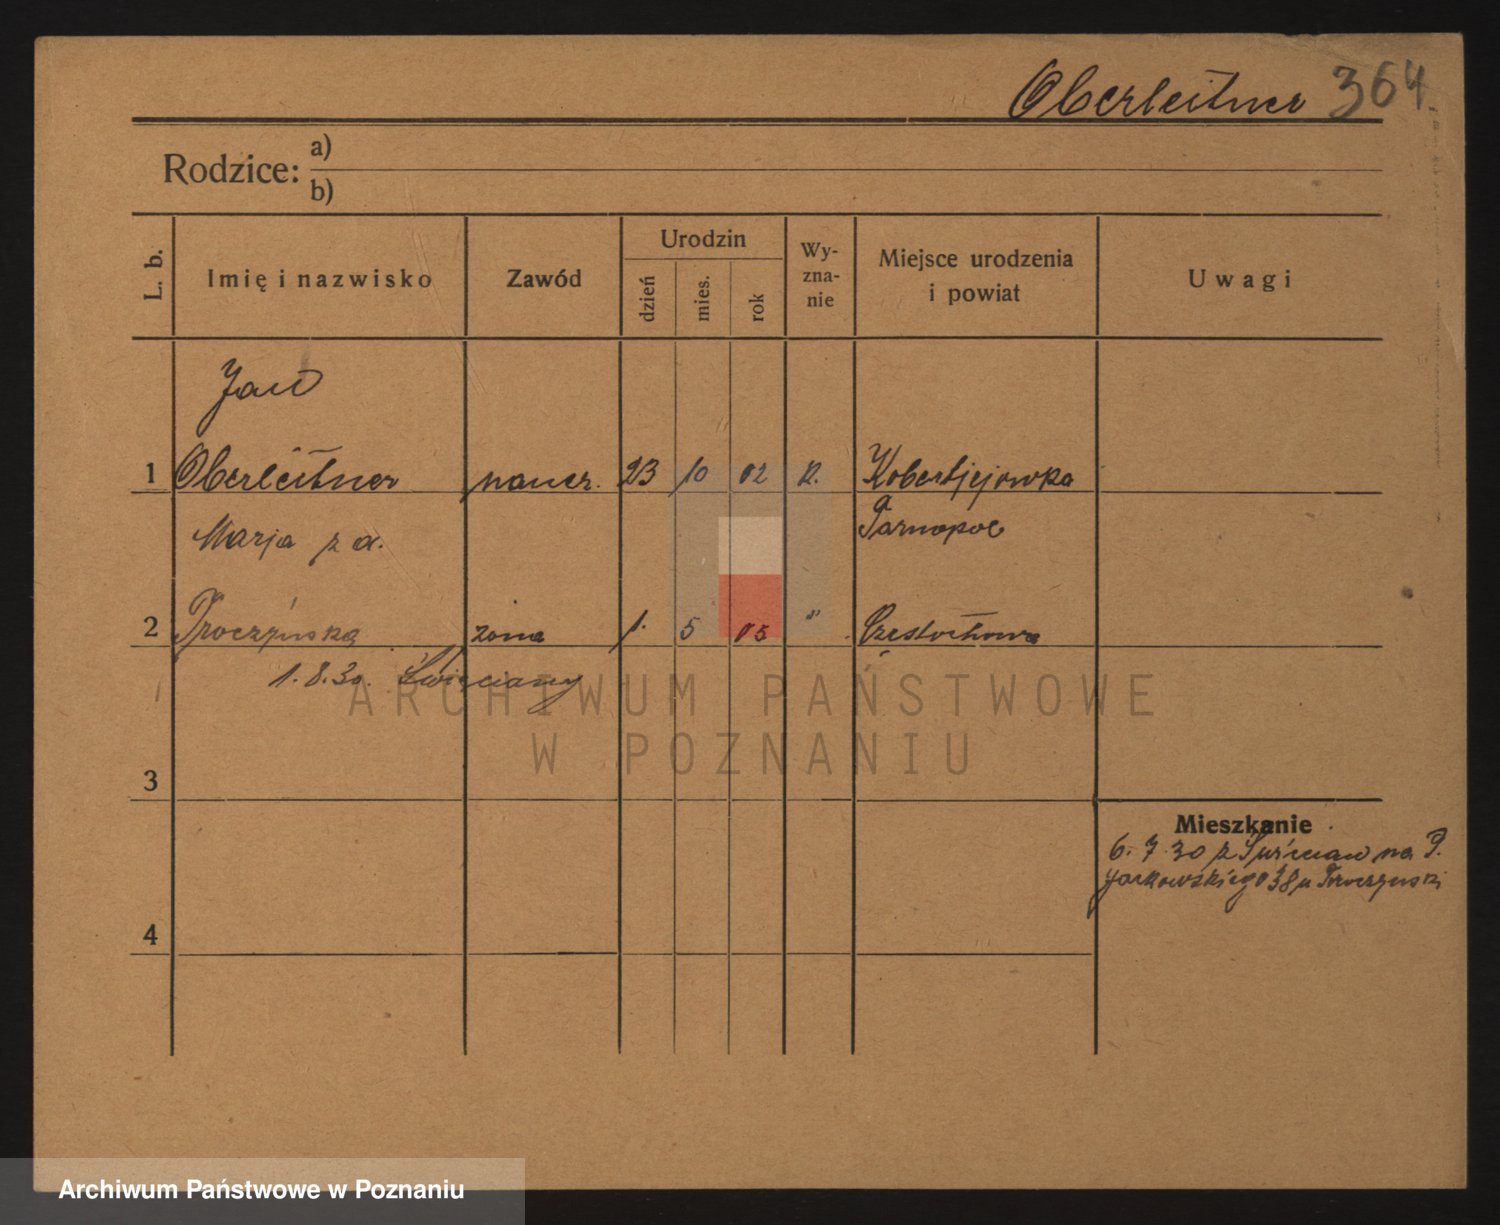 Oberleitner 364.
Rodzice: a)
b)
L. b.
Imię i nazwisko
Zawód
Urodzin
dzień
mies.
rok
Wy-
zna-
nie
Miejsce urodzenia
i powiat
Uwagi
Jan
1 Oberleitner naucz. 23 10 02 R.
Marja z d. Tarnopol
2 Troczyńska żona 1. 5 05 " Częstochowa
1.8.30. Święciany
ARCHIWUM PAŃSTWOWE
W POZNANIU
3
Mieszkanie
6.7.30 z Święcian na P.
Jackowskiego 38 u Troczynski
4
Archiwum Państwowe w Poznaniu